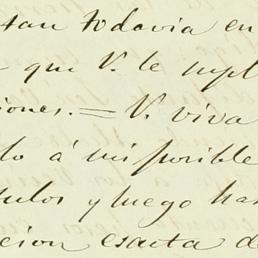 stan todavia en
que V. le supl
iones. = V. viva
lo á mi posible
tulos y luego has
cion esacta de